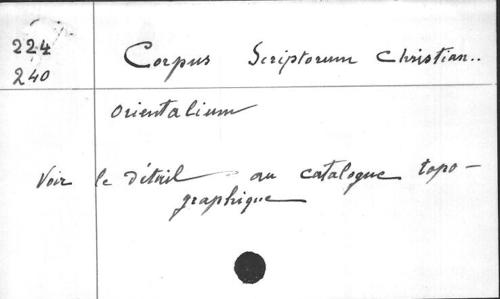 224
240
Corpus Scriptorum Christian..
orientalium
Voir le détail au catalogue topo-
graphique